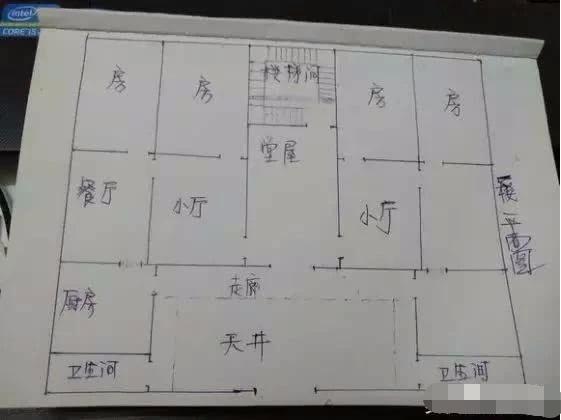 intel
CORE i5
楼梯间
房
房
房
房
堂屋
餐厅
小厅
小厅
一楼平面图
走廊
厨房
天井
卫生间
卫生间